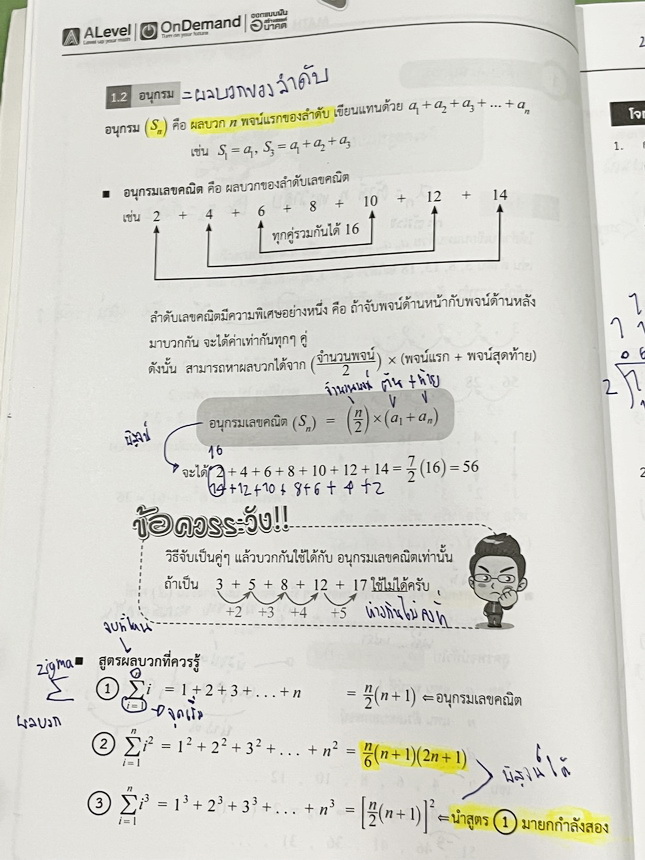 ALevel | OnDemand
Level up your math
Turn on your future.
ออกแบบฝัน
สร้างสรรค์
อนาคต
1.2 อนุกรม = ผลบวกของลำดับ
อนุกรม (Sₙ) คือ ผลบวก n พจน์แรกของลำดับ เขียนแทนด้วย a₁ + a₂ + a₃ + ... + aₙ
เช่น S₁ = a₁, S₃ = a₁ + a₂ + a₃
■ อนุกรมเลขคณิต คือ ผลบวกของลำดับเลขคณิต
เช่น 2 + 4 + 6 + 8 + 10 + 12 + 14
ทุกคู่รวมกันได้ 16
ลำดับเลขคณิตมีความพิเศษอย่างหนึ่ง คือ ถ้าจับพจน์ด้านหน้ากับพจน์ด้านหลัง
มาบวกกัน จะได้ค่าเท่ากันทุกๆ คู่
ดังนั้น สามารถหาผลบวกได้จาก (จำนวนพจน์/2) × (พจน์แรก + พจน์สุดท้าย)
จำนวนพจน์ ต้น + ท้าย
อนุกรมเลขคณิต (Sₙ) = (n/2) × (a₁ + aₙ)
พิสูจน์
16
จะได้ 2 + 4 + 6 + 8 + 10 + 12 + 14 = 7/2 (16) = 56
14 + 12 + 10 + 8 + 6 + 4 + 2
ข้อควรระวัง!!
วิธีจับเป็นคู่ๆ แล้วบวกกันใช้ได้กับ อนุกรมเลขคณิตเท่านั้น
ถ้าเป็น 3 + 5 + 8 + 12 + 17 ใช้ไม่ได้ครับ
+2 +3 +4 +5 ห่างกันไม่คงที่
จบที่ไหน
■ สูตรผลบวกที่ควรรู้
zigma
Σ
ผลบวก
① Σⁿᵢ₌₁ i = 1 + 2 + 3 + . . . + n = n/2 (n + 1) ⇐ อนุกรมเลขคณิต
จุดเริ่ม
② Σⁿᵢ₌₁ i² = 1² + 2² + 3² + . . . + n² = n/6 (n + 1)(2n + 1)
พิสูจน์ได้
③ Σⁿᵢ₌₁ i³ = 1³ + 2³ + 3³ + . . . + n³ = [n/2 (n + 1)]² ⇐ นำสูตร ① มายกกำลังสอง
โจท
1.